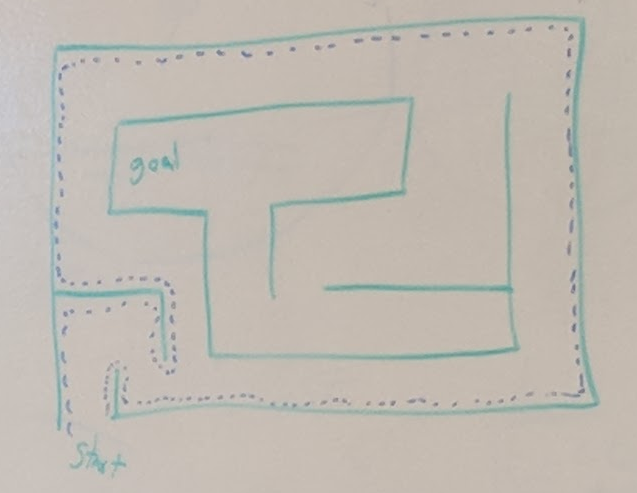 goal
Start